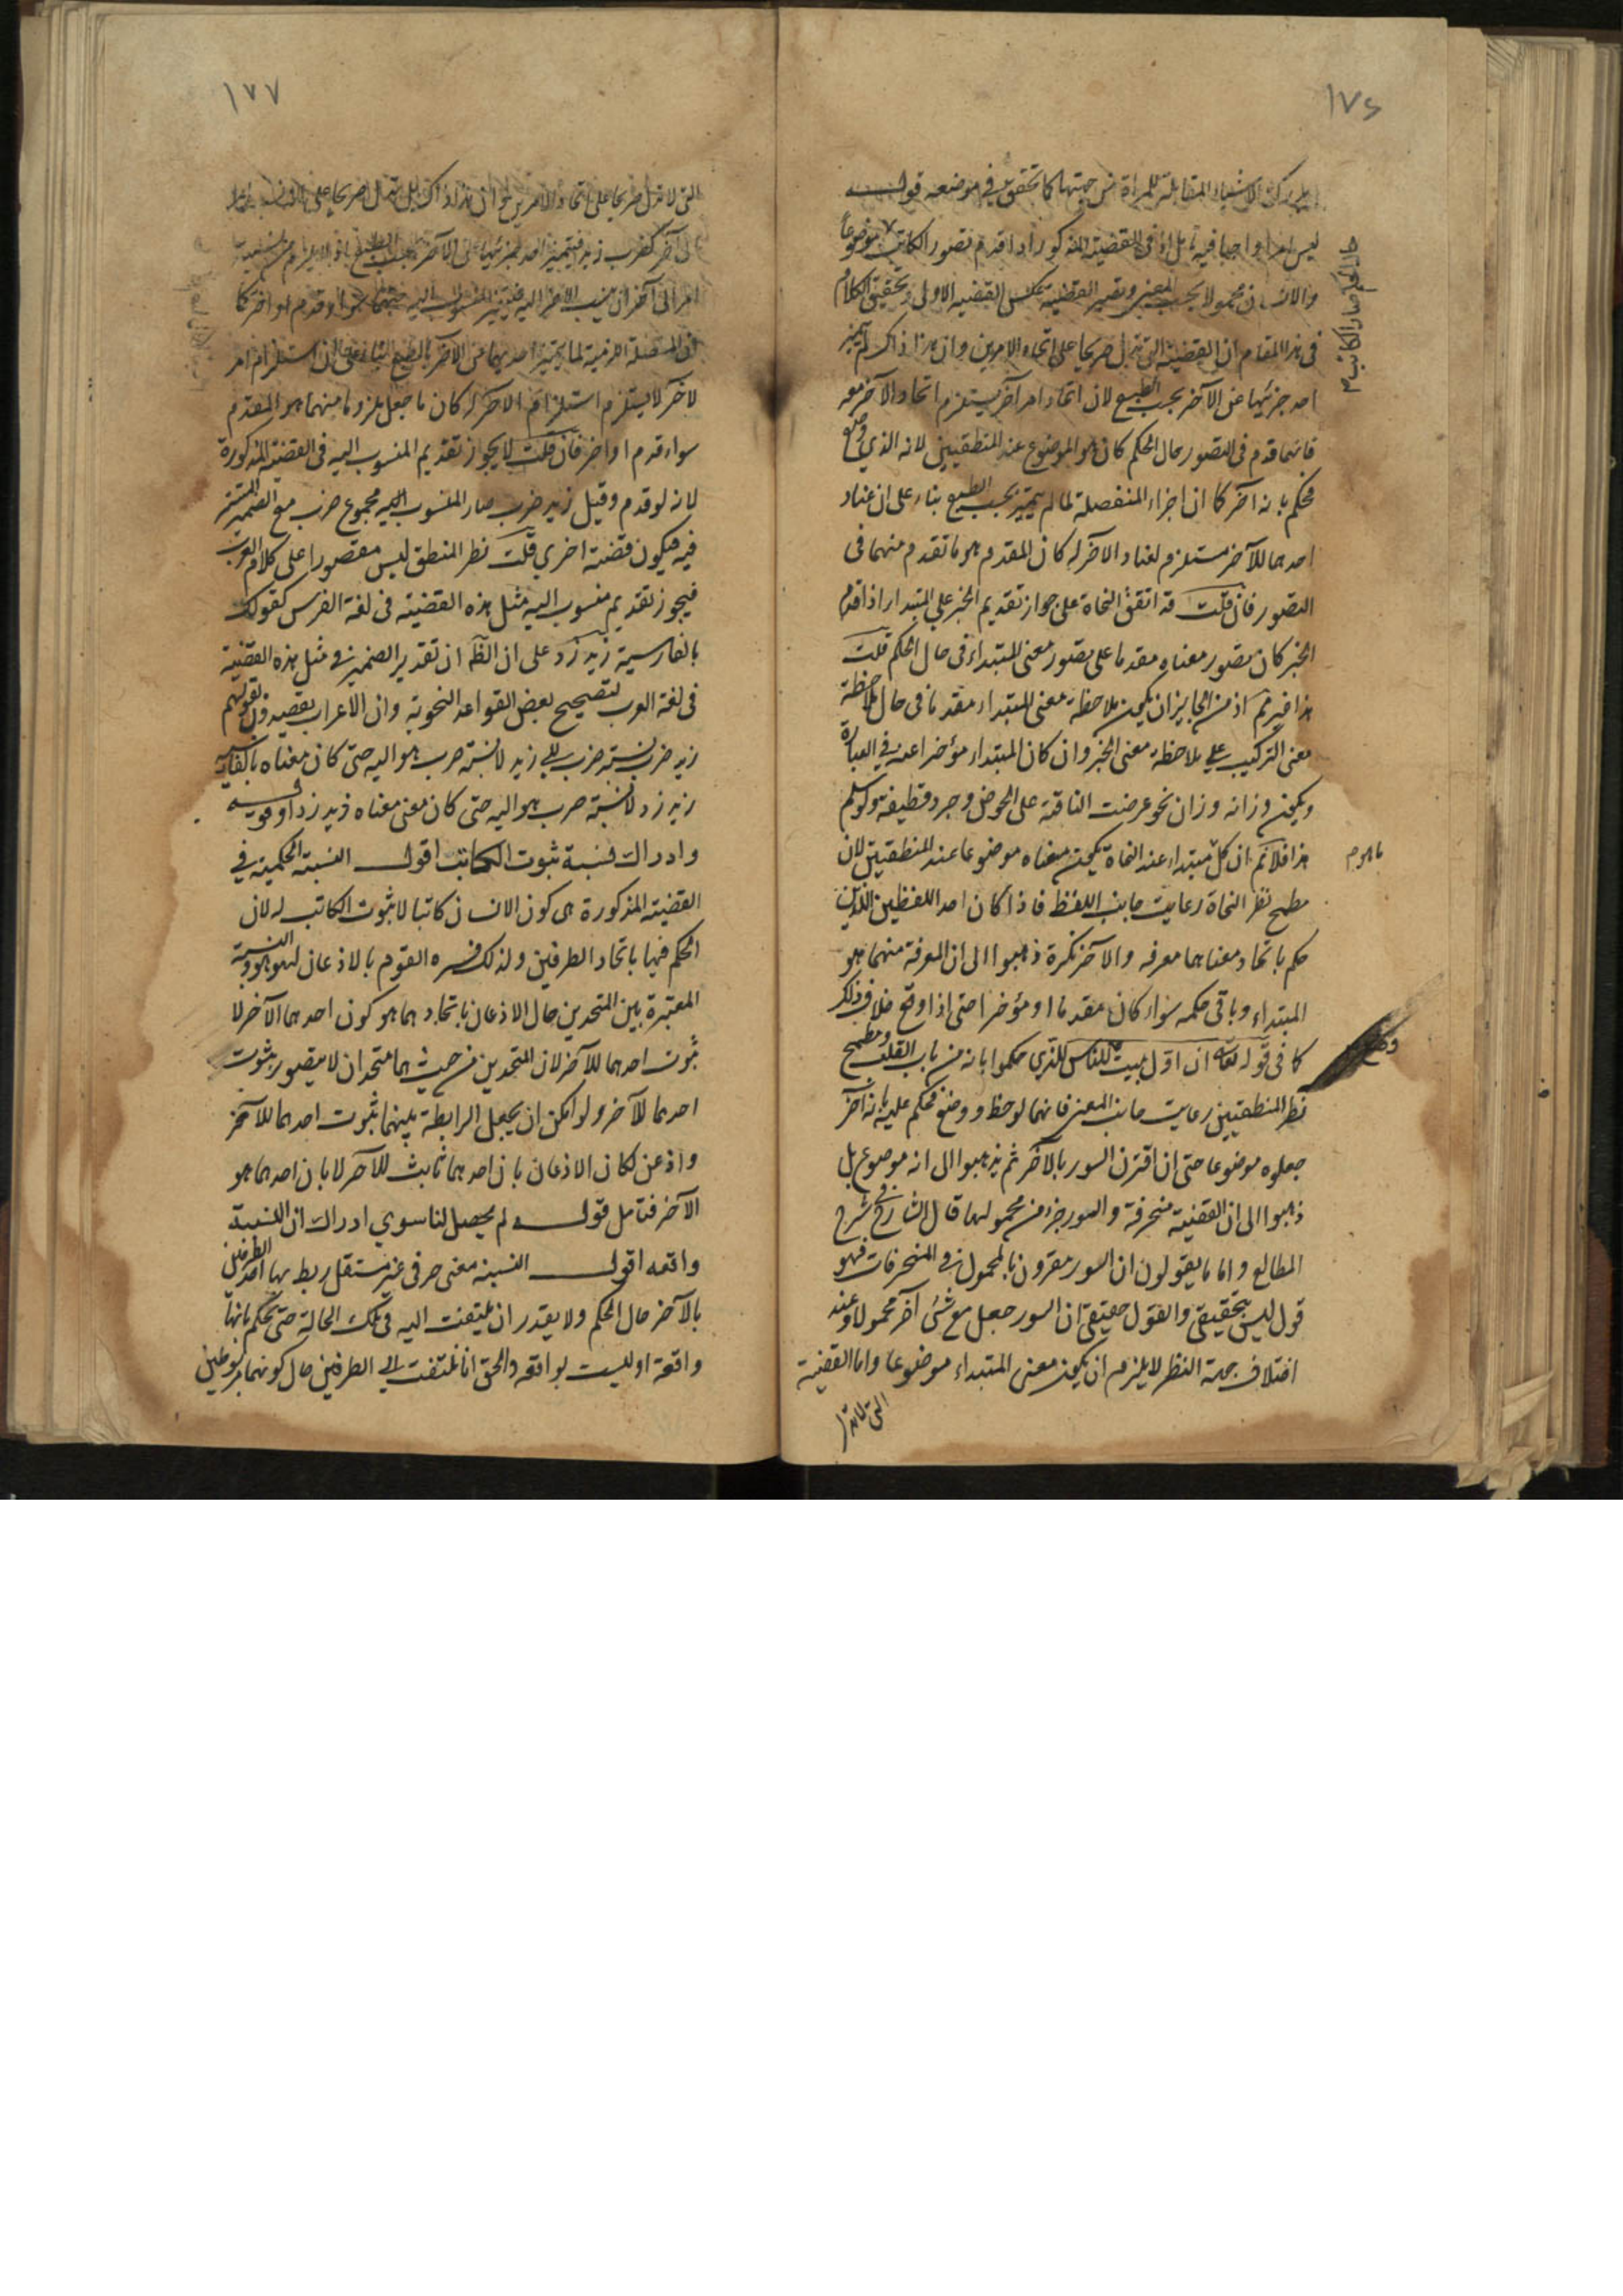 ١٧٦
يدرك الاشياء المقابلة للمرآة من جهتها كما تحقق في موضعه قوله
ليس امرا واجبا فيه تامل اذ في القضية المذكورة اذا قدم تصور الكاتب موضوعا
حال الحكم صار الكاتب
والانسان محمولا بحسب المعنى وتصير القضية عكس القضية الاولى وتحقيق الكلام
في هذا المقام ان القضية التي تدل صريحا على اتحاد الامرين وان هذا ذاك لم يتميز
احد جزئيها عن الآخر بحسب الطبع لان اتحاد امر آخر يستلزم اتحاد الآخر معه
فايهما قدم في التصور حال الحكم كان هو الموضوع عند المنطقيين لانه الذي وضع
فحكم بانه آخر كما ان اجزاء المنفصلة لما لم يتميز بحسب الطبع بناء على ان عناد
احدهما للآخر مستلزم لعناد الآخر له كان المقدم هو ما تقدم منهما في
التصور فان قلت قد اتفق النحاة على جواز تقديم الخبر على المبتدا واذا قدم
الخبر كان تصور معناه مقدما على تصور معنى المبتداء في حال الحكم قلت
هذا غير تم اذ من الجايز ان يكون ملاحظة معنى المبتداء مقدما في حال ملاحظة
معنى التركيب على ملاحظة معنى الخبر وان كان المبتداء مؤخرا عنه في العبارة
ويكون وزانه وزان نحو عرضت الناقة على الحوض وجرد قطيفة ولو سلم
هذا فلا تم ان كل مبتداء عند النحاة يكون معناه موضوعا عند المنطقيين لان
مطمح نظر النحاة رعاية جانب اللفظ فاذا كان احد اللفظين اللذين
حكم باتحاد معناهما معرفه والآخر نكرة ذهبوا الى ان المعرفة منهما هو
المبتداء وباقي حكمه سواء كان مقدما او مؤخرا حتى اذا وقع خلاف ذلك
كما في قوله تعالى ان اول بيت وضع للناس للذي حكموا بانه من باب القلب ومطمح
نظر المنطقيين رعاية جانب المعنى فايهما لوحظ ووضع فحكم عليه بانه آخر
جعلوه موضوعا حتى ان اقترن السور بالآخر ثم يذهبوا الى انه موضوع بل
ذهبوا الى ان القضية منحرفة والسور جزء من محمولها قال الشارح في شرح
المطالع واما ما يقولون ان السور مقرون بالمحمول في المنحرفات فهو
قول ليس بتحقيقي والقول حقيقي ان السور جعل مع شئ آخر محمولا وعند
اختلاف جهة النظر لا يلزم ان يكون معنى المبتداء موضوعا واما القضية
التي لا تدل
١٧٧
التي لا تدل صريحا على اتحاد الامرين وان هذا ذاك بل تدل صريحا على
الى آخر كضرب زيد فيتميز احد جزئيها عن الآخر بحسب الطبع اذ لا يلزم من نسبة
امر الى آخر ان ينسب الآخر اليه فيتميز المنسوب اليه منهما سواء قدم او اخر كما
ان المتصلة اللزومية لما يتميز احديهما عن الآخر بالطبع بناء على ان استلزام امر
لآخر لا يستلزم استلزام الآخر له كان ما جعل ملزوما منهما هو المقدم
سواء قدم او اخر فان قلت لا يجوز تقديم المنسوب اليه في القضية المذكورة
لانه لو قدم وقيل زيد ضرب صار المنسوب اليه مجموع ضرب مع الضمير المستتر
فيه فيكون قضية اخرى قلت نظر المنطق ليس مقصورا على كلام العرب
فيجوز تقديم منسوب اليه مثل هذه القضية في لغة الفرس كقولك
بالفارسية زيد زد على ان الظه ان تقدير الضمير في مثل هذه القضية
في لغة العرب لتصحيح بعض القواعد النحوية وان الاعراب يقصدون بقولهم
زيد ضرب نسبة ضرب الى زيد لا نسبة ضرب هو اليه حتى كان معناه بالفارسية
زيد زد لا نسبة ضرب هو اليه حتى كان معنى معناه زيد زد او قوله
وادراك نسبة ثبوت الكاتب اقول النسبة الحكمية في
القضية المذكورة هى كون الانسان كاتبا لا ثبوت الكاتب له لان
الحكم فيها باتحاد الطرفين ولذلك فسره القوم بالاذعان لهو هو والنسبة
المعتبرة بين المتحدين حال الاذعان باتحادهما هو كون احدهما الآخر لا
ثبوت احدهما للآخر لان المتحدين من حيث هما متحدان لا يتصور ثبوت
احدهما للآخر ولو امكن ان يجعل الرابطة بينهما ثبوت احدهما للآخر
واذعن لكان الاذعان بان احدهما ثابت للآخر لا بان احدهما هو
الآخر فتامل قوله لم يحصل لنا سوى ادراك ان النسبة
واقعه اقول النسبة معنى حرفى غير مستقل ربط بها احد الطرفين
بالآخر حال الحكم ولا يقدر ان يلتفت اليه في تلك الحالة حتى يحكم بانها
واقعة او ليست بواقعه والحق انا نلتفت الى الطرفين حال كونهما مربوطين